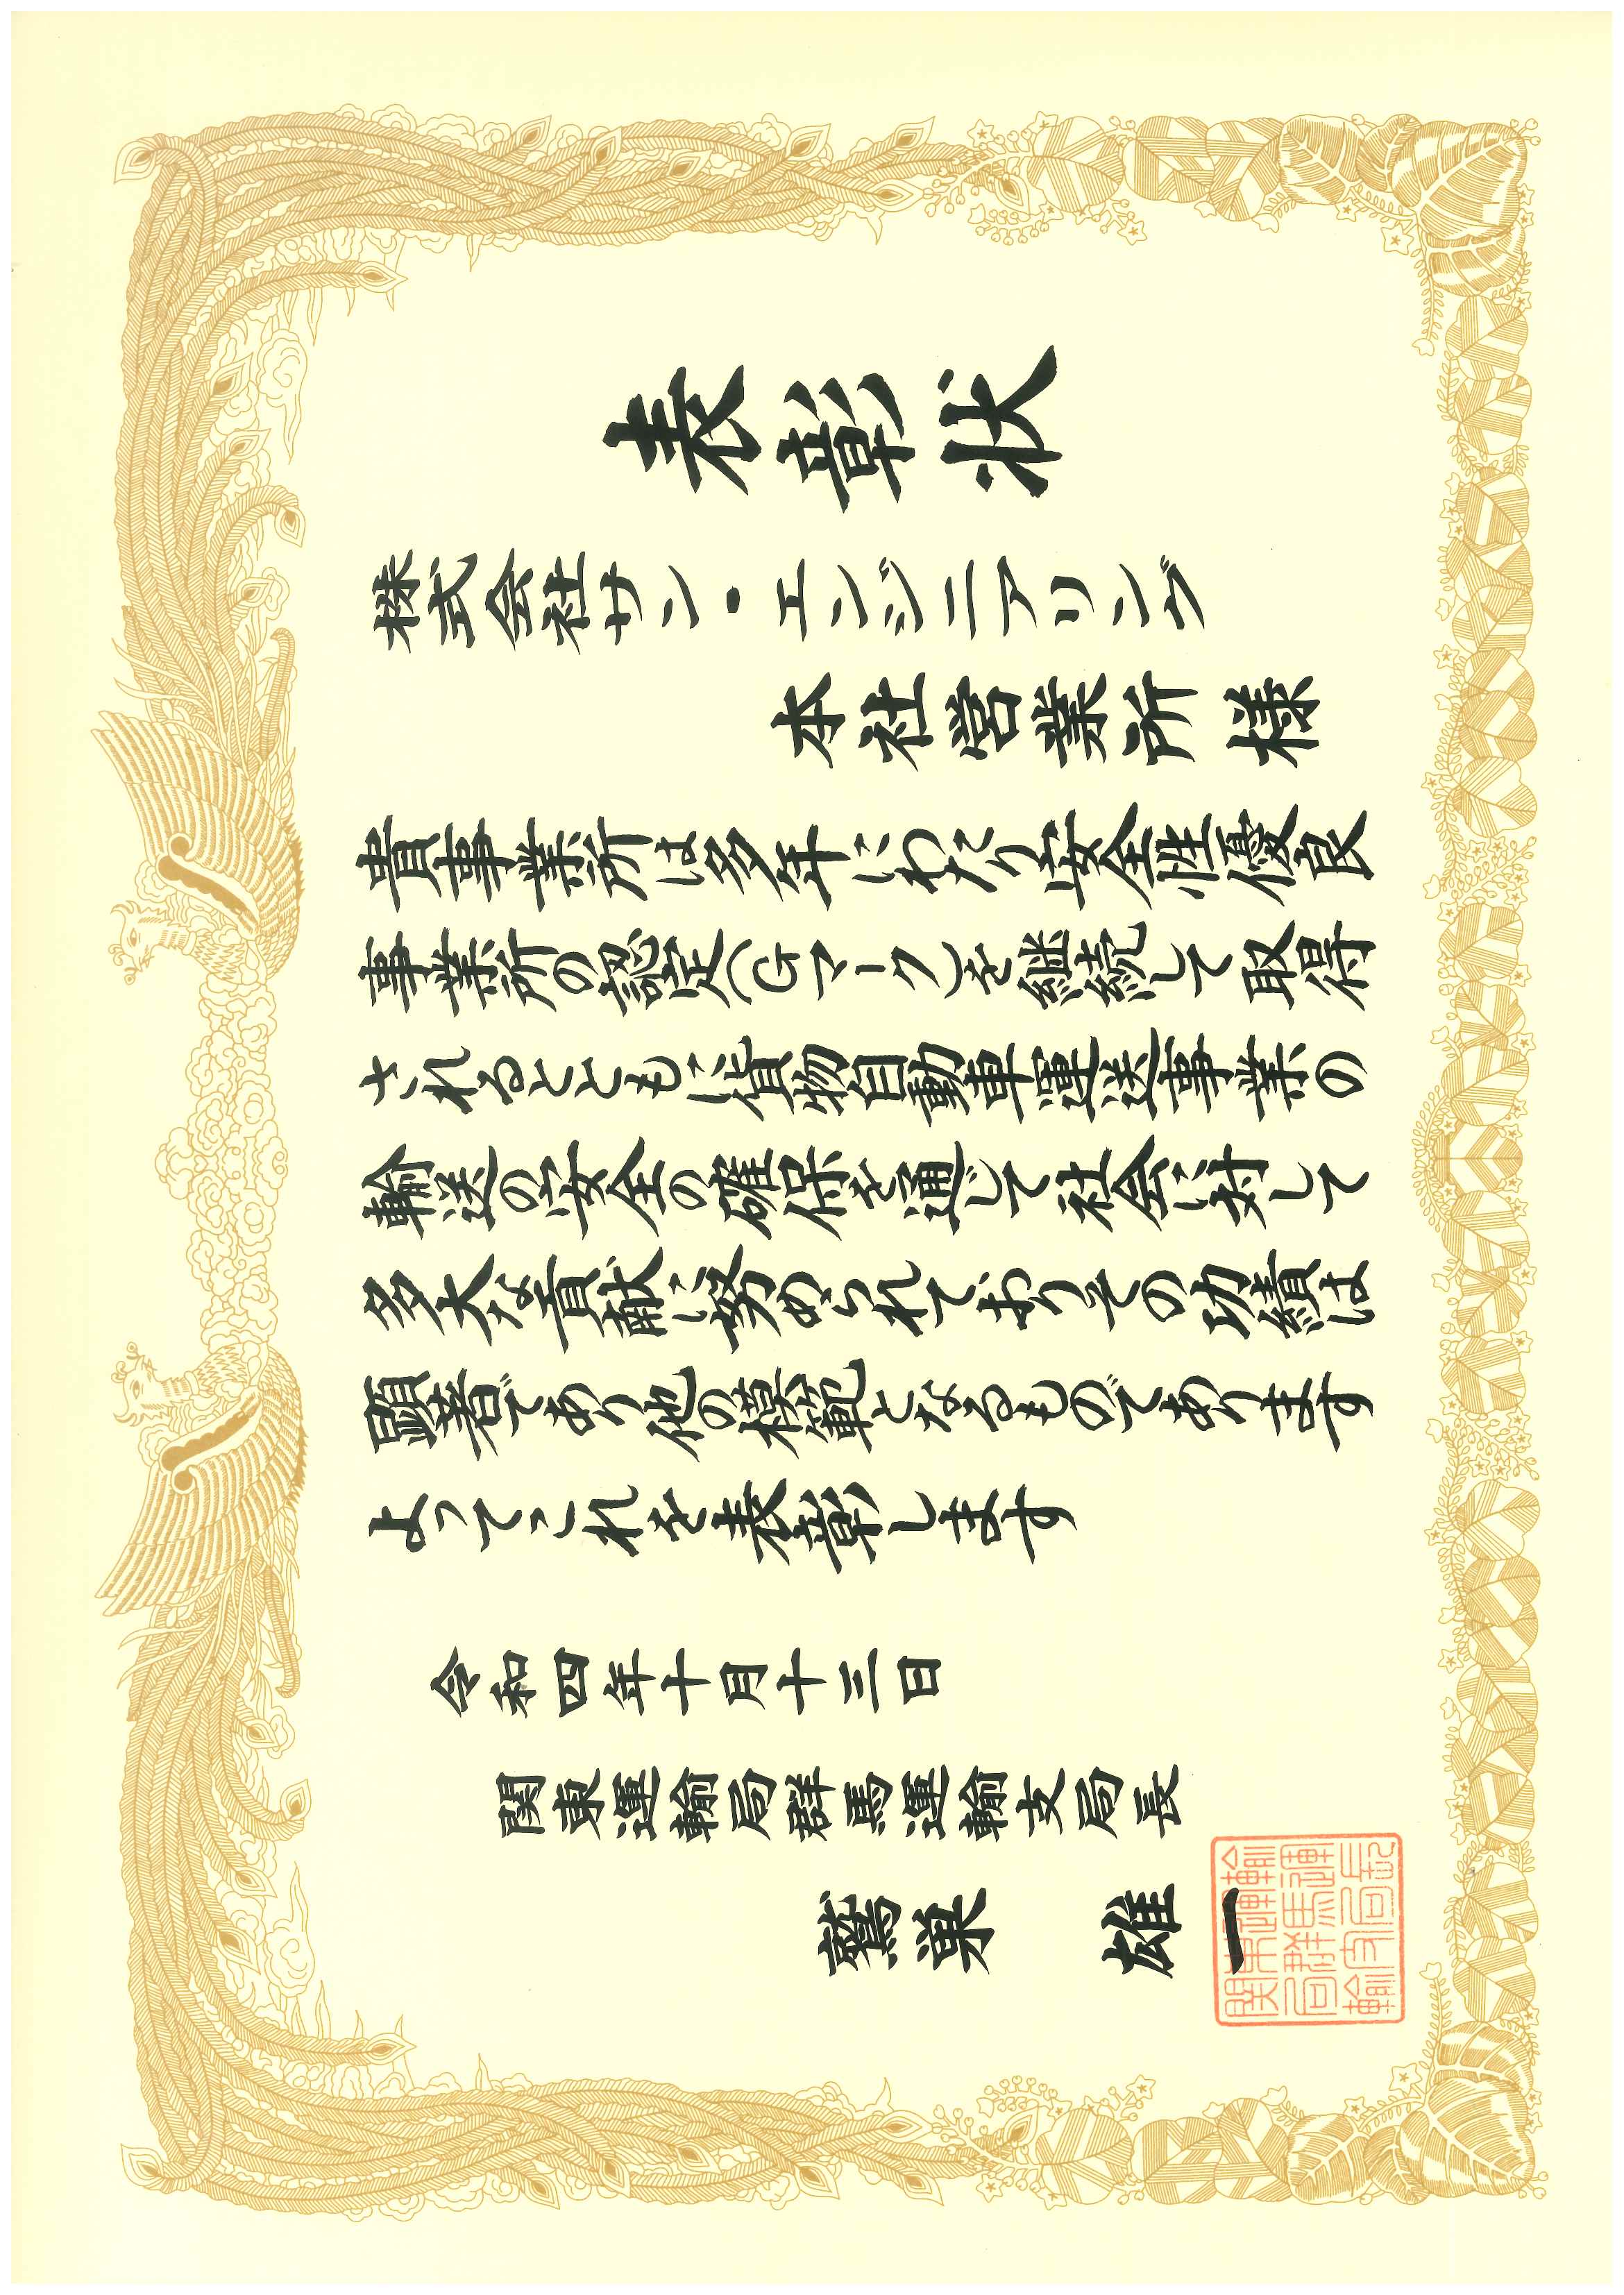 表彰状
株式会社サン・エンジニアリング
本社営業所様
貴事業所は多年にわたり安全性優良
事業所の認定(Gマーク)を継続して取得
されるとともに貨物自動車運送事業の
輸送の安全の確保を通じて社会に対して
多大な貢献に努められておりその功績は
顕著であり他の模範となるものであります
よってこれを表彰します
令和四年十月十三日
関東運輸局群馬運輸支局長
鷲巣 雄一
関東運輸
局群馬運
輸支局長